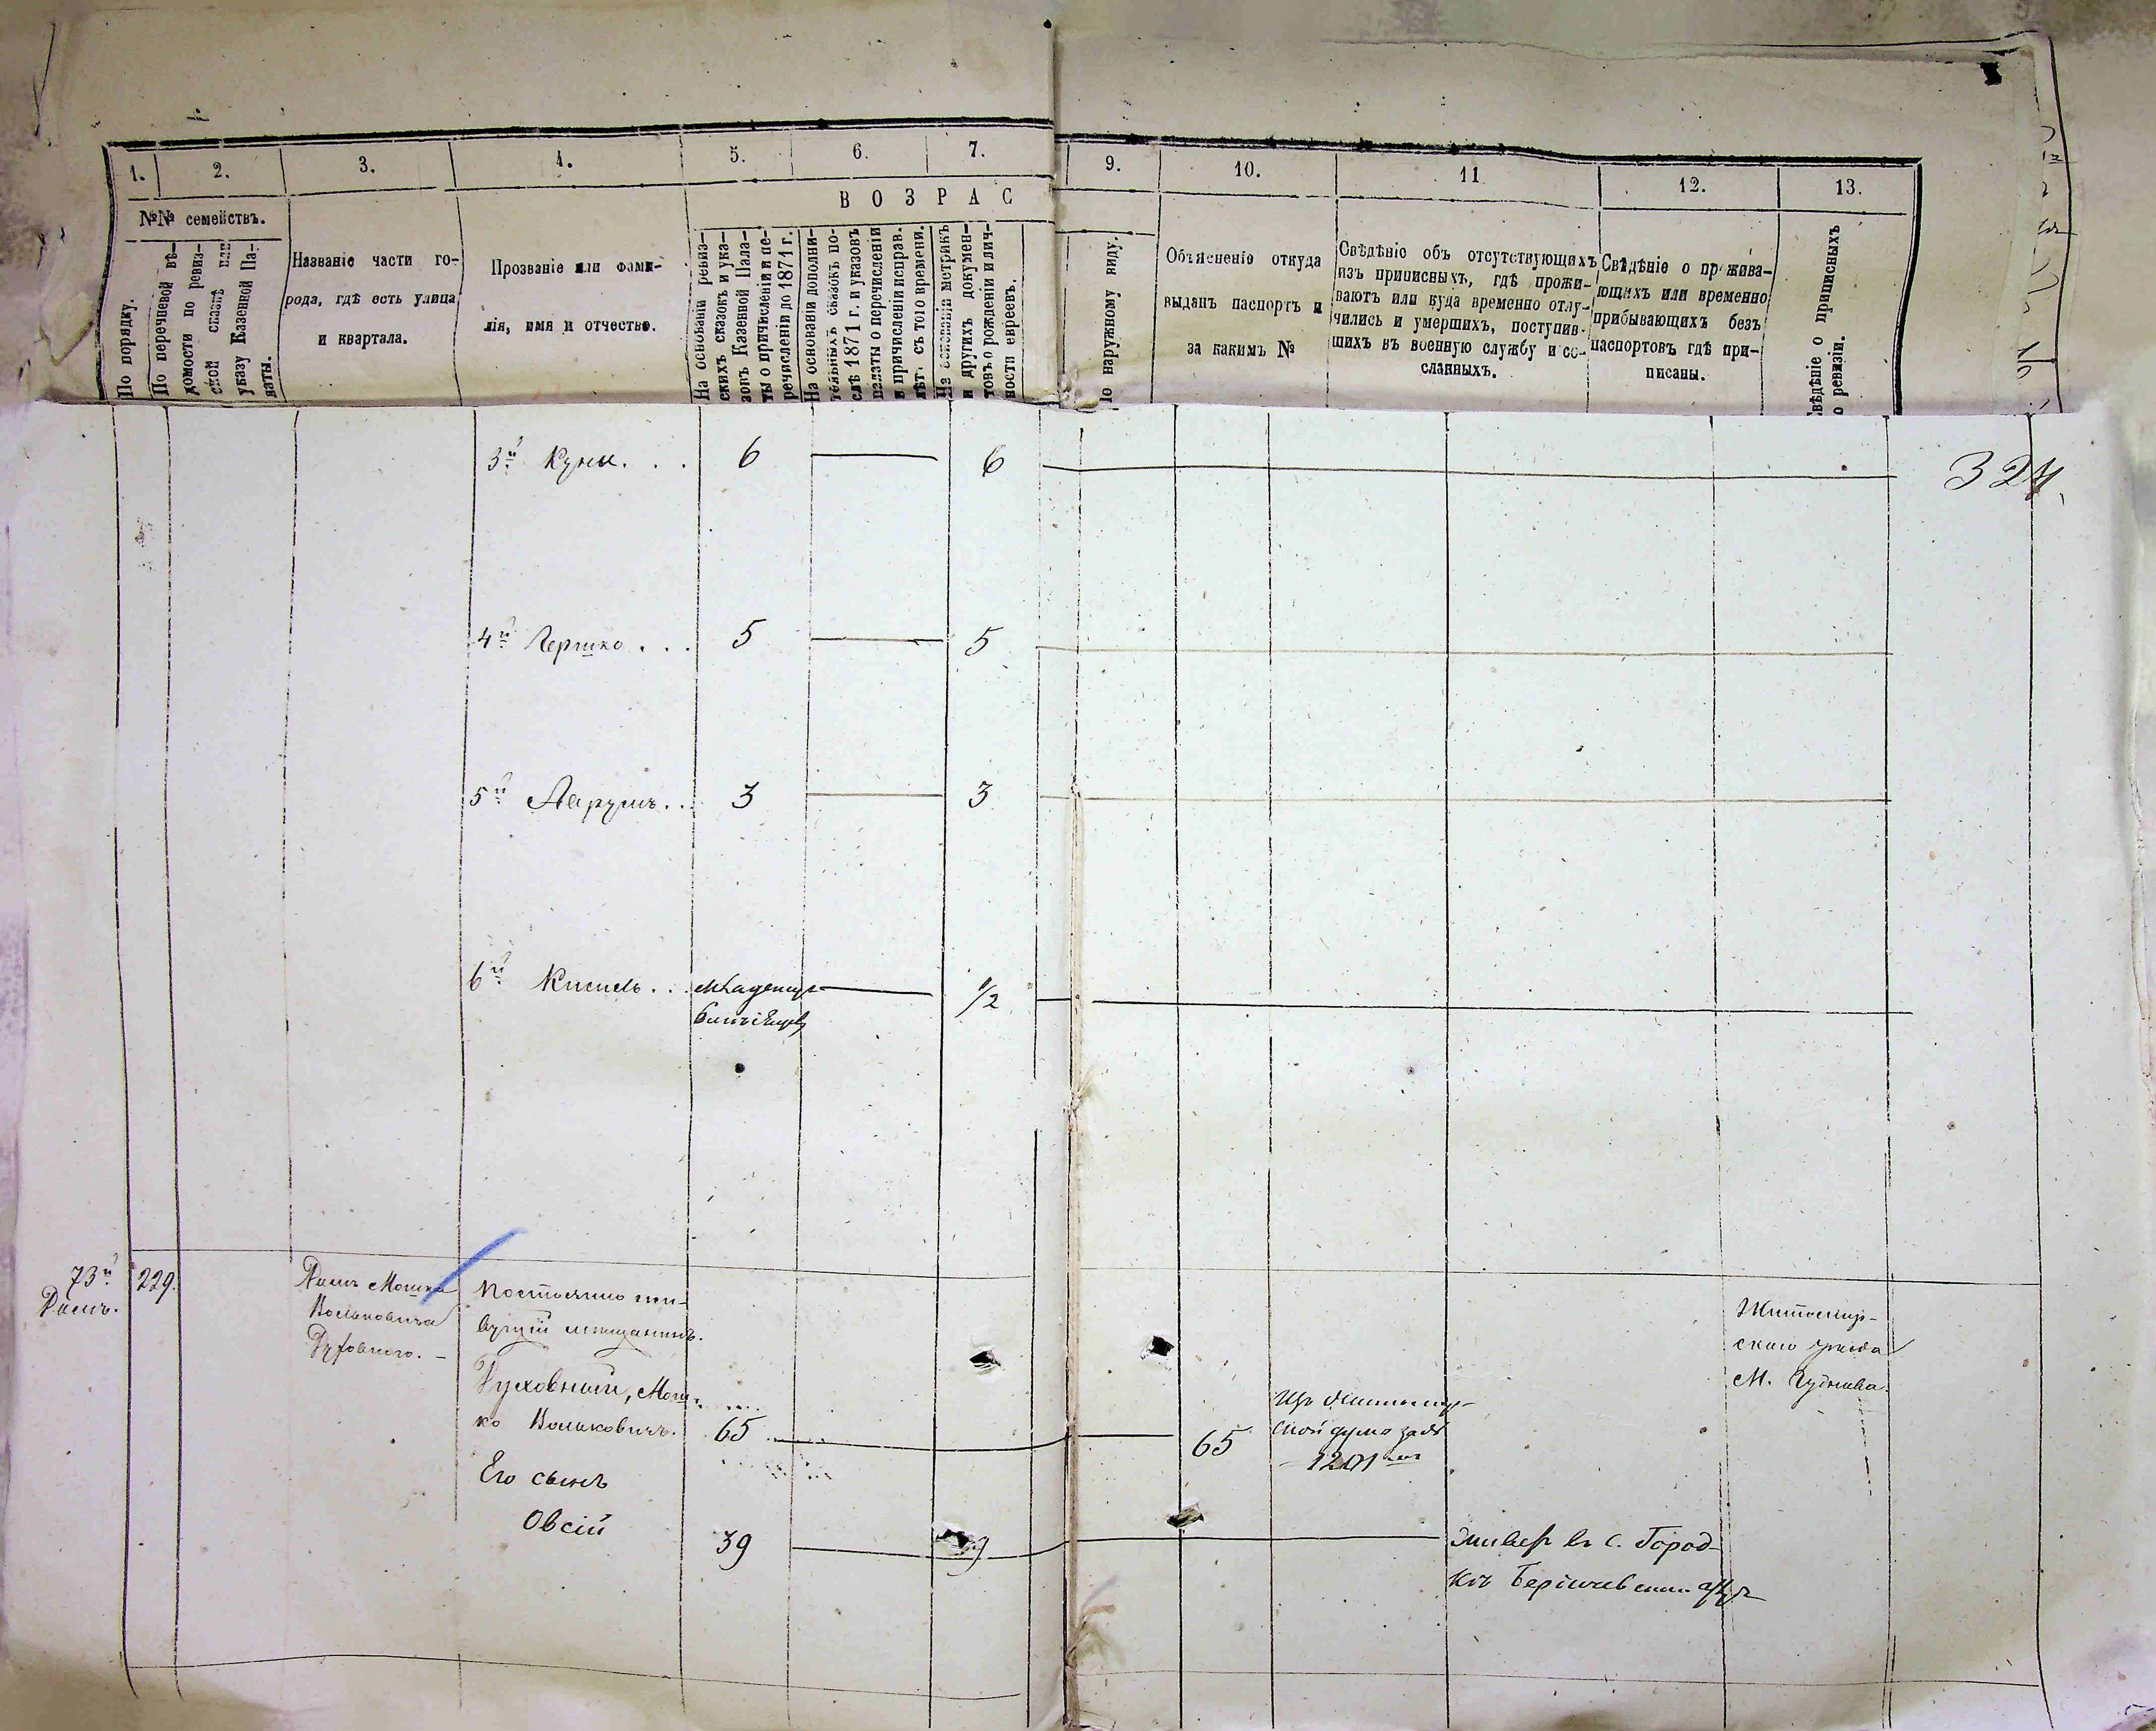 1. 2. 3. 4. 5. 6. 7. 9. 10. 11 12. 13.
В О З Р А С
№№ семействъ.
По порядку.
По перечневой вѣ-
домости по ревиз-
ской сказкѣ или
указу Казенной Па-
латы.
Названіе части го-
рода, гдѣ есть улица
и квартала.
Прозваніе или фами-
лія, имя и отчество.
На основаніи ревиз-
скихъ сказокъ и ука-
зовъ Казенной Пала-
ты о причисленіи и пе-
речисленіи до 1871 г.
На основаніи дополни-
тельныхъ сказокъ по-
слѣ 1871 г. и указовъ
палаты о перечисленіи
и причисленіи исправ.
лѣт. съ того времени.
На основаніи метрикъ
и другихъ докумен-
товъ о рожденіи и лич-
ности евреевъ.
По наружному виду.
Объясненіе откуда
выданъ паспортъ и
за какимъ №
Свѣдѣніе объ отсутствующихъ
изъ приписныхъ, гдѣ прожи-
ваютъ или куда временно отлу-
чились и умершихъ, поступив-
шихъ въ военную службу и со-
сланныхъ.
Свѣдѣніе о прожива-
ющихъ или временно
прибывающихъ безъ
паспортовъ гдѣ при-
писаны.
Свѣдѣніе о приписныхъ
о ревизіи.
3й Куна. . . 6 6
324
4й Гершко . . . 5 5
5й Лерумъ. . . 3 3
6й Кисиль. . . 1/2
73й 229.
Домъ.
Домъ Мошка
Вольковича
Духовного. –
Постоянно жи-
вущій мещанинъ.
Духовный, Мош-
ко Вольковичъ. 65 65
Его сынъ
Овсій 39
Изъ Житомир-
ской думы за №
1201
Живетъ въ с. Город-
кѣ Бердичевскаго
Житомир-
скаго уѣзда
М. Чуднова.